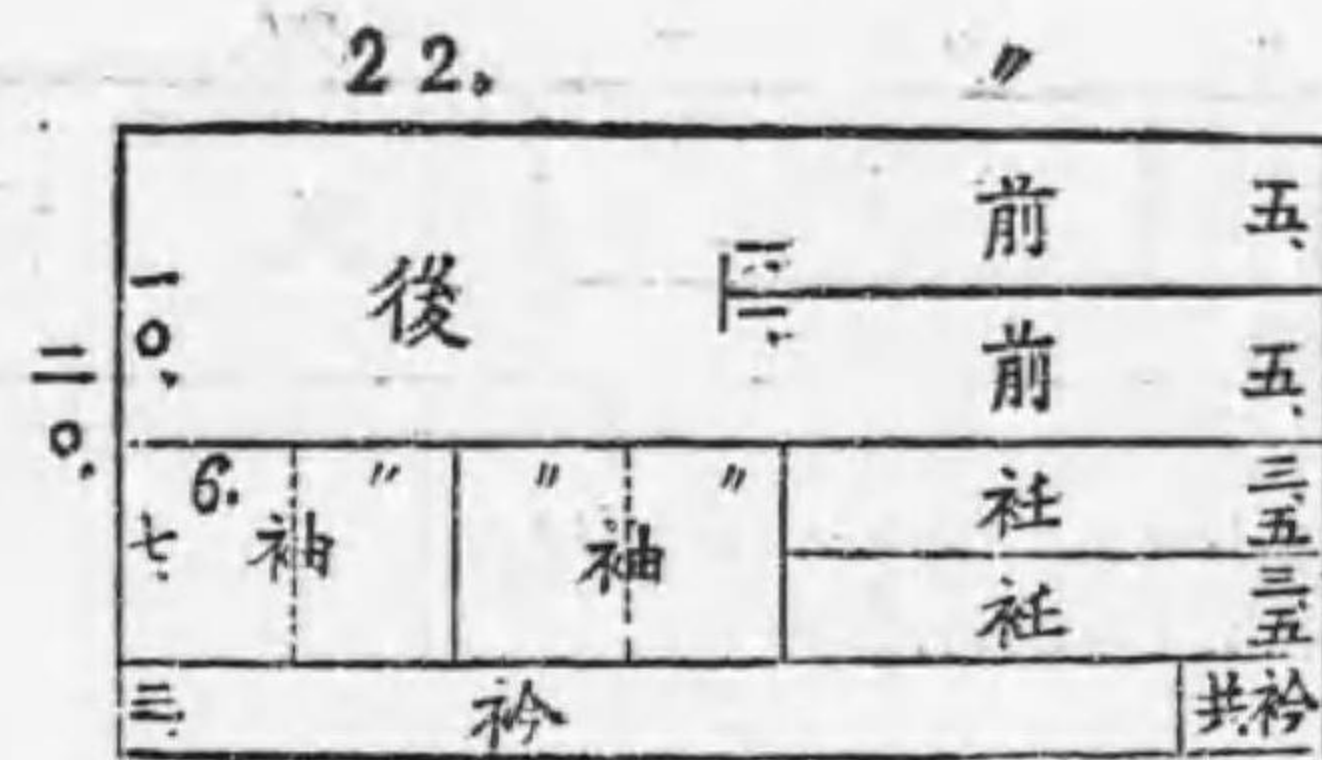 22. 〃
二〇.
一〇.
後
前 五、
前 五、
6. 〃 〃 〃
七、
袖 袖
衽 三、五
衽 三、五
三、 衿 共衿